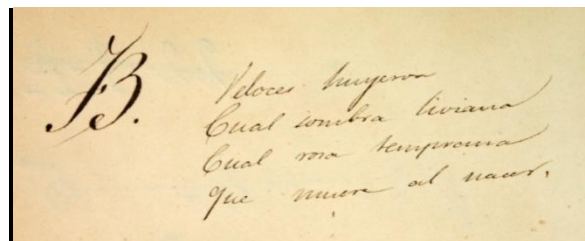 B.
Veloces huyeron
Cual sombra liviana
Cual rosa temprana
Que muere al nacer.